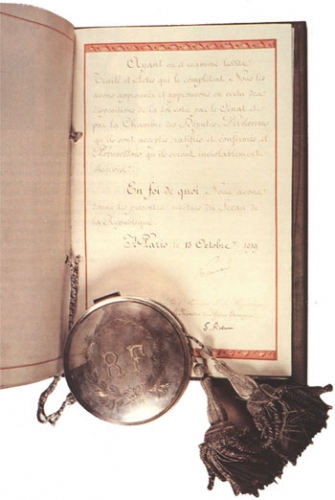 Ayant vu et examiné ledit
Traité et Actes qui le complètent Nous les
avons approuvés et approuvons en vertu des
dispositions de la loi votée par le Sénat et
par la Chambre des Députés, Déclarons
qu'ils sont acceptés, ratifiés et confirmés, et
Promettons qu'ils seront inviolablement
observés.
En foi de quoi, Nous avons
donné les présentes, revêtues du Sceau de
la République.
À Paris le 13 Octobre 1919
Par le
R F